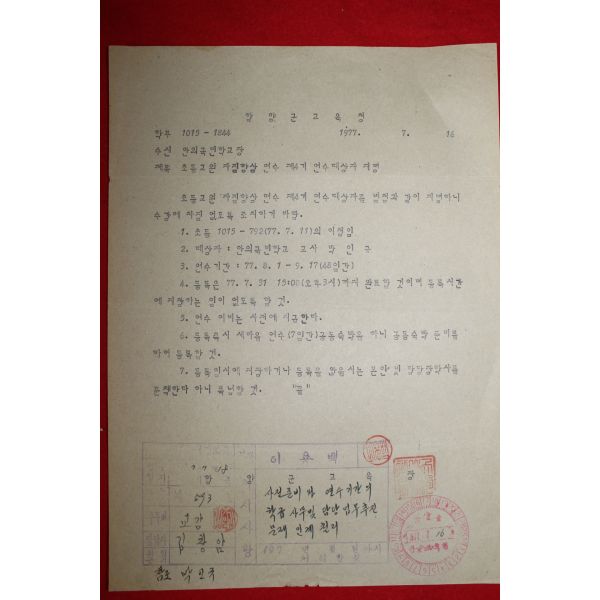 함양군교육청
학무 1015-1844 1977. 7. 16
수신 안의국민학교장
제목 초등교원 자질향상 연수 제4기 연수대상자 지명
초등교원 자질향상 연수 제4기 연수대상자를 별명과 같이 지명하니
수강에 차질 없도록 조치하기 바람.
1. 초등 1015-792(77. 7. 11)의 이첩임.
2. 대상자 : 안의국민학교 교사 박 인 규
3. 연수기간 : 77. 8. 1 - 9. 17(48일간)
4. 등록은 77. 7. 31 15:00(오후3시)까지 완료할 것이며 등록시간
에 지참하는 일이 없도록 할 것.
5. 연수 여비는 사전에 지급한다.
6. 등록즉시 새마을 연수(7일간)공동숙박을 하니 공동숙박 준비를
하여 등록할 것.
7. 등록일시에 지참하거나 등록을 않을시는 본인 및 담당장학사를
문책한다 하니 유념할 것. "끝"
이 용 백
함양군교육장
7.7.18
593
교감
사전준비 및 연수기간의
학급 사무 및 담당 업무추진
문제 인계 철저
공람 박인규